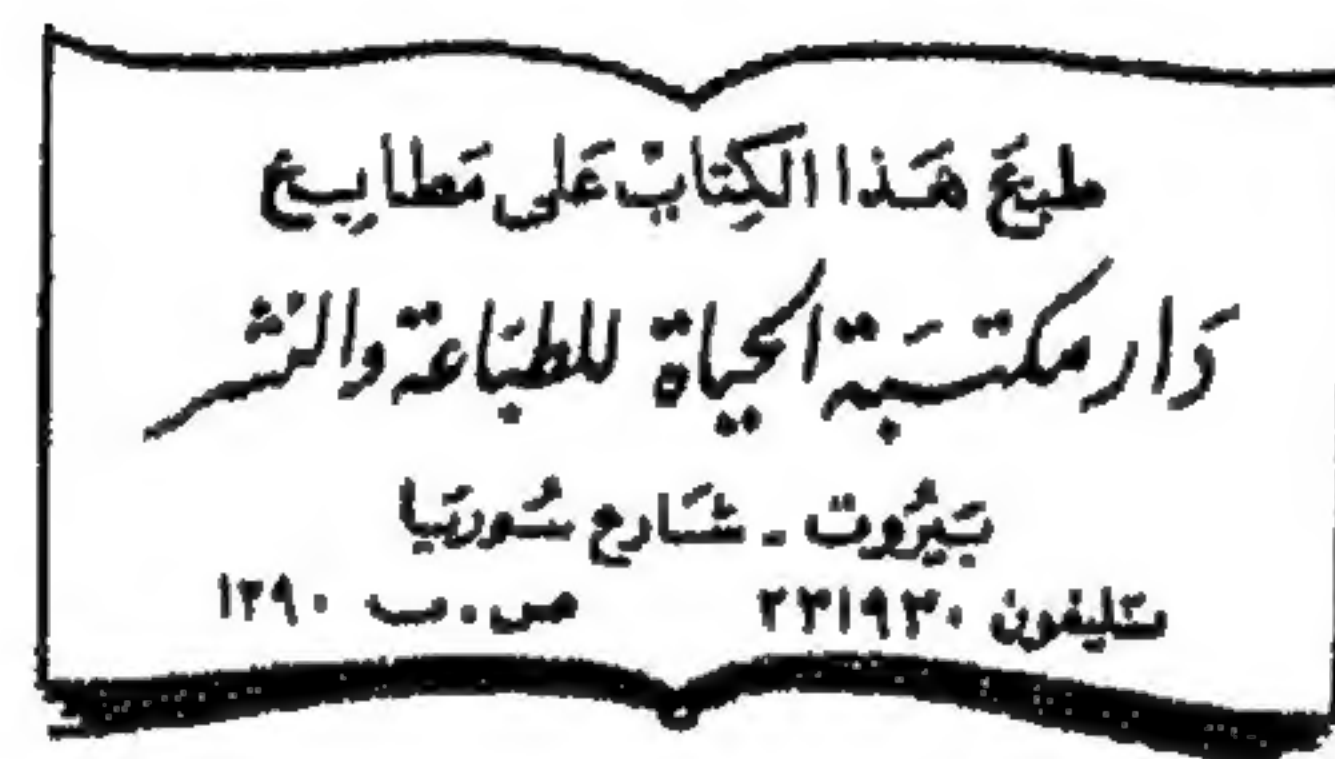 طبعَ هَذا الكِتابْ عَلى مَطابِع
دَار مكتبَة الحيَاة للطبَاعة والنشر
بَيرُوت - شَارع سُوريَا
تليفون ٢٢١٩٣٠ ص.ب ١٣٩٠